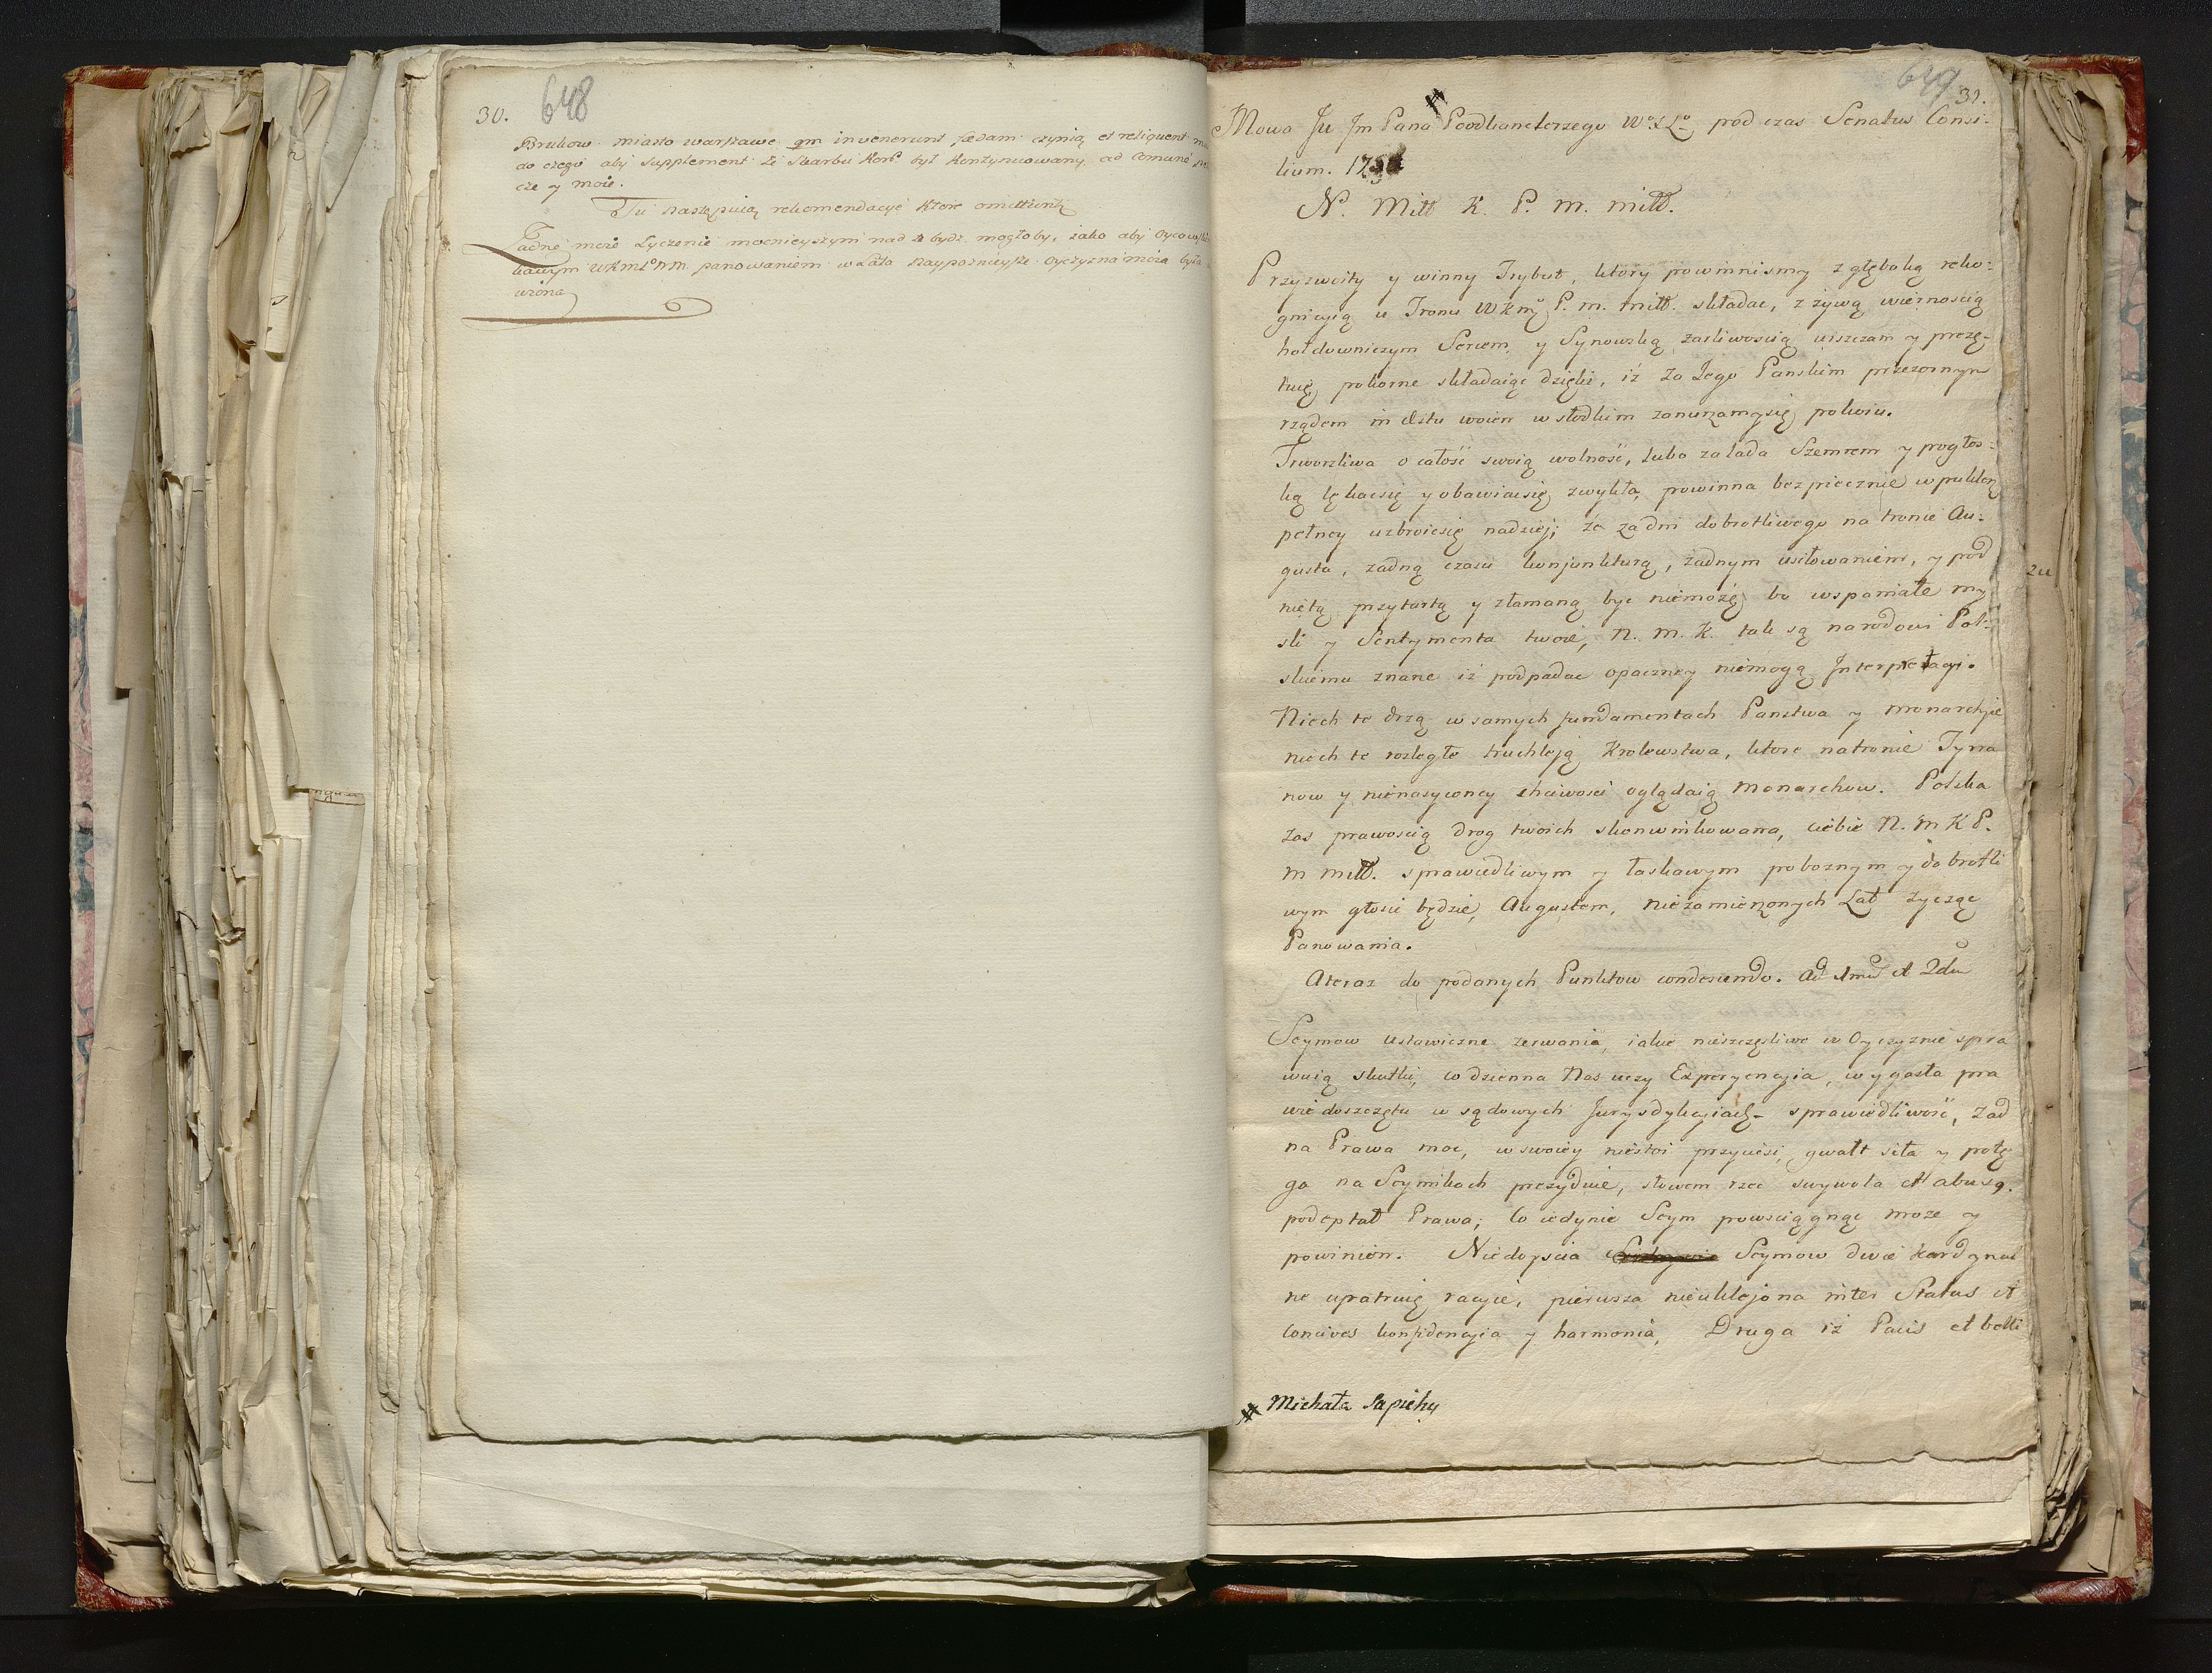 30. 648
Brukow miasto warszawe qm invenerunt fædam czynią et reliquent
do czego aby supplement ze Skarbu Kor. był kontynuowany, ad comune
cze y moie.
Tu następuią rekomendacye które omittuntur
Zadne moie Zyczenie mocnieyszym nad to bydz mogłoby, iako aby Oycow
kawym WKMci PNM panowaniem w Lata naypoznieysze Oyczyzna moia była
wiona
649 31.
Mowa Ju Jm Pana # Podkanclerzego W°X L° pod czas Senatus Consi-
lium. 175
N. Mitt K. P. m. mitt.
Przyzwoity y winny Trybut, ktory powinnismy z głęboką reko-
gnicyią u Tronu WKmci P. m. mitt. składac, z żywą wiernoscią
hołdowniczym Sercem y Synowską zarliwoscią uiszczam y prezę-
tuię, pokorne składaiąc dzięki, iż za Jego Panskim przezornym
rządem in æstu woien w słodkim zanurzamy się pokoiu.
Trwozliwa o całość swoią wolność, lubo za lada Szemrem y pogłos-
ką lękac się y obawiac się zwykła, powinna bezpiecznie w puklerz
pełney uzbroic się nadziei; że za dni dobrotliwego na tronie Au-
gusta, zadną czasu konjunkturą, żadnym usiłowaniem, y pod
nietą przytartą y złamaną byc niemoże, bo wspaniałe my
sli y Sentymenta twoie, N. M. K. tak są narodowi Pol-
skiemu znane iż podpadac opaczney niemogą Interpretacyi.
Niech te drzą w samych fundamentach Panstwa y Monarchie
niech te rozległe truchleją Krolewstwa, ktore na tronie Tyra
now y nienasyconey chciwosci oglądaią Monarchow. Polska
zas prawoscią drog twoich skonwinkowana, ciebie N. M K P.
m mitt. sprawiedliwym y łaskawym poboznym y dobrotli
wym głosic będzie, Augustem, niezamierzonych Lat życząc
Panowania.
A teraz do podanych Punktow condescendo. Ad 1mū et 2dū
Seymow ustawiczne zerwania, iakie nieszczęsliwe w Oyczyznie spra
wuią skutki, codzienna Nas uczy Experyencyia, wygasła pra
wie do szczętu w sądowych Jurysdykcyiach sprawiedliwość, żad
na Prawa moc, w swoiey niestoi przyciesi, gwałt siła y potę
ga na Seymikach prezyduie, słowem rzec swywola et abusą.
podeptał Prawa; Co iedynie Seym powsciągnąc moze y
powinien. Niedoyscia Seymow dwie kardynal
ne upatruię racyie, pierwsza nieuklejona inter Status et
Concives konfidencyia y harmonia, Druga iż Pacis et belli
# Michała Sapiehy